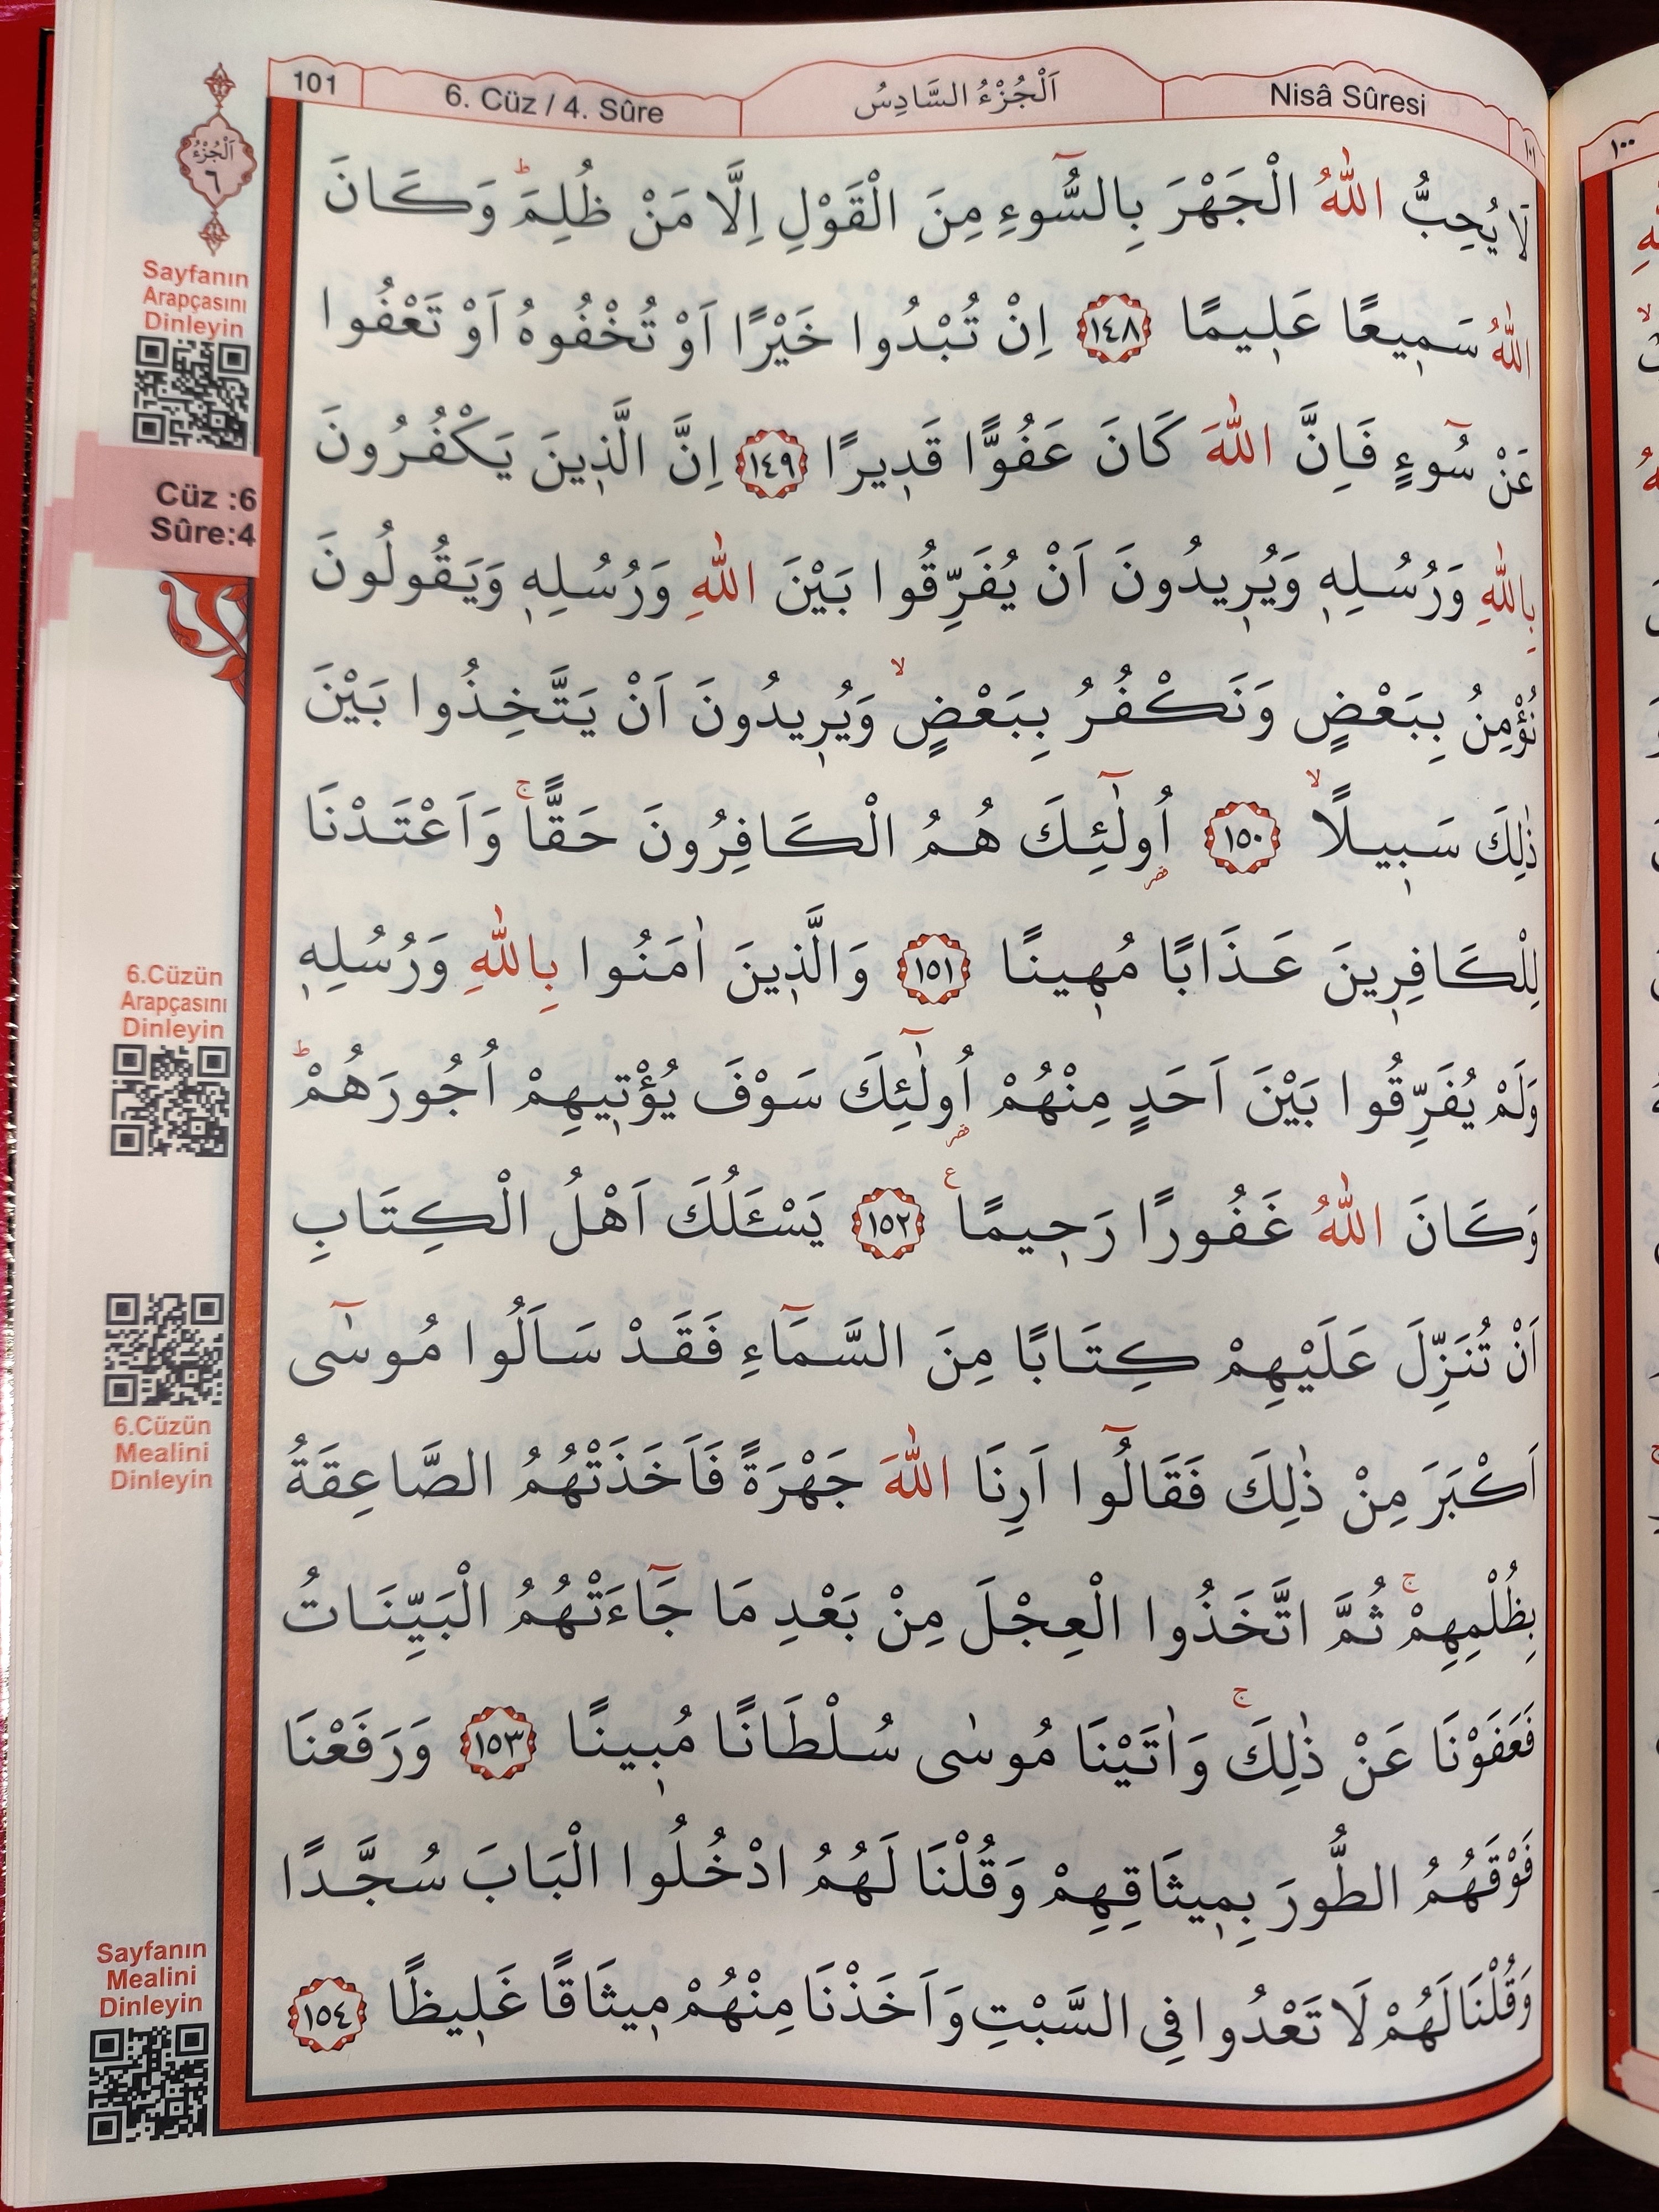 101
6. Cüz / 4. Sûre
اَلْجُزْءُ السَّادِسُ
Nisâ Sûresi
١٠١
١٠٠
اَلْجُزْءُ
٦
Sayfanın
Arapçasını
Dinleyin
Cüz :6
Sûre:4
6.Cüzün
Arapçasını
Dinleyin
6.Cüzün
Mealini
Dinleyin
Sayfanın
Mealini
Dinleyin
لَا يُحِبُّ اللّٰهُ الْجَهْرَ بِالسُّٓوءِ مِنَ الْقَوْلِ اِلَّا مَنْ ظُلِمَۜ وَكَانَ
اللّٰهُ سَم۪يعًا عَل۪يمًا ﴿١٤٨﴾ اِنْ تُبْدُوا خَيْرًا اَوْ تُخْفُوهُ اَوْ تَعْفُوا
عَنْ سُٓوءٍ فَاِنَّ اللّٰهَ كَانَ عَفُوًّا قَد۪يرًا ﴿١٤٩﴾ اِنَّ الَّذ۪ينَ يَكْفُرُونَ
بِاللّٰهِ وَرُسُلِه۪ وَيُر۪يدُونَ اَنْ يُفَرِّقُوا بَيْنَ اللّٰهِ وَرُسُلِه۪ وَيَقُولُونَ
نُؤْمِنُ بِبَعْضٍ وَنَكْفُرُ بِبَعْضٍۙ وَيُر۪يدُونَ اَنْ يَتَّخِذُوا بَيْنَ
ذٰلِكَ سَب۪يلًاۙ ﴿١٥٠﴾ اُو۬لٰٓئِكَ هُمُ الْكَافِرُونَ حَقًّاۚ وَاَعْتَدْنَا
لِلْكَافِر۪ينَ عَذَابًا مُه۪ينًا ﴿١٥١﴾ وَالَّذ۪ينَ اٰمَنُوا بِاللّٰهِ وَرُسُلِه۪
وَلَمْ يُفَرِّقُوا بَيْنَ اَحَدٍ مِنْهُمْ اُو۬لٰٓئِكَ سَوْفَ يُؤْت۪يهِمْ اُجُورَهُمْۜ
وَكَانَ اللّٰهُ غَفُورًا رَح۪يمًاۧ ﴿١٥٢﴾ يَسْـَٔلُكَ اَهْلُ الْكِتَابِ
اَنْ تُنَزِّلَ عَلَيْهِمْ كِتَابًا مِنَ السَّمَٓاءِ فَقَدْ سَاَلُوا مُوسٰٓى
اَكْبَرَ مِنْ ذٰلِكَ فَقَالُٓوا اَرِنَا اللّٰهَ جَهْرَةً فَاَخَذَتْهُمُ الصَّاعِقَةُ
بِظُلْمِهِمْۚ ثُمَّ اتَّخَذُوا الْعِجْلَ مِنْ بَعْدِ مَا جَٓاءَتْهُمُ الْبَيِّنَاتُ
فَعَفَوْنَا عَنْ ذٰلِكَۚ وَاٰتَيْنَا مُوسٰى سُلْطَانًا مُب۪ينًا ﴿١٥٣﴾ وَرَفَعْنَا
فَوْقَهُمُ الطُّورَ بِم۪يثَاقِهِمْ وَقُلْنَا لَهُمُ ادْخُلُوا الْبَابَ سُجَّدًا
وَقُلْنَا لَهُمْ لَا تَعْدُوا فِي السَّبْتِ وَاَخَذْنَا مِنْهُمْ م۪يثَاقًا غَل۪يظًا ﴿١٥٤﴾